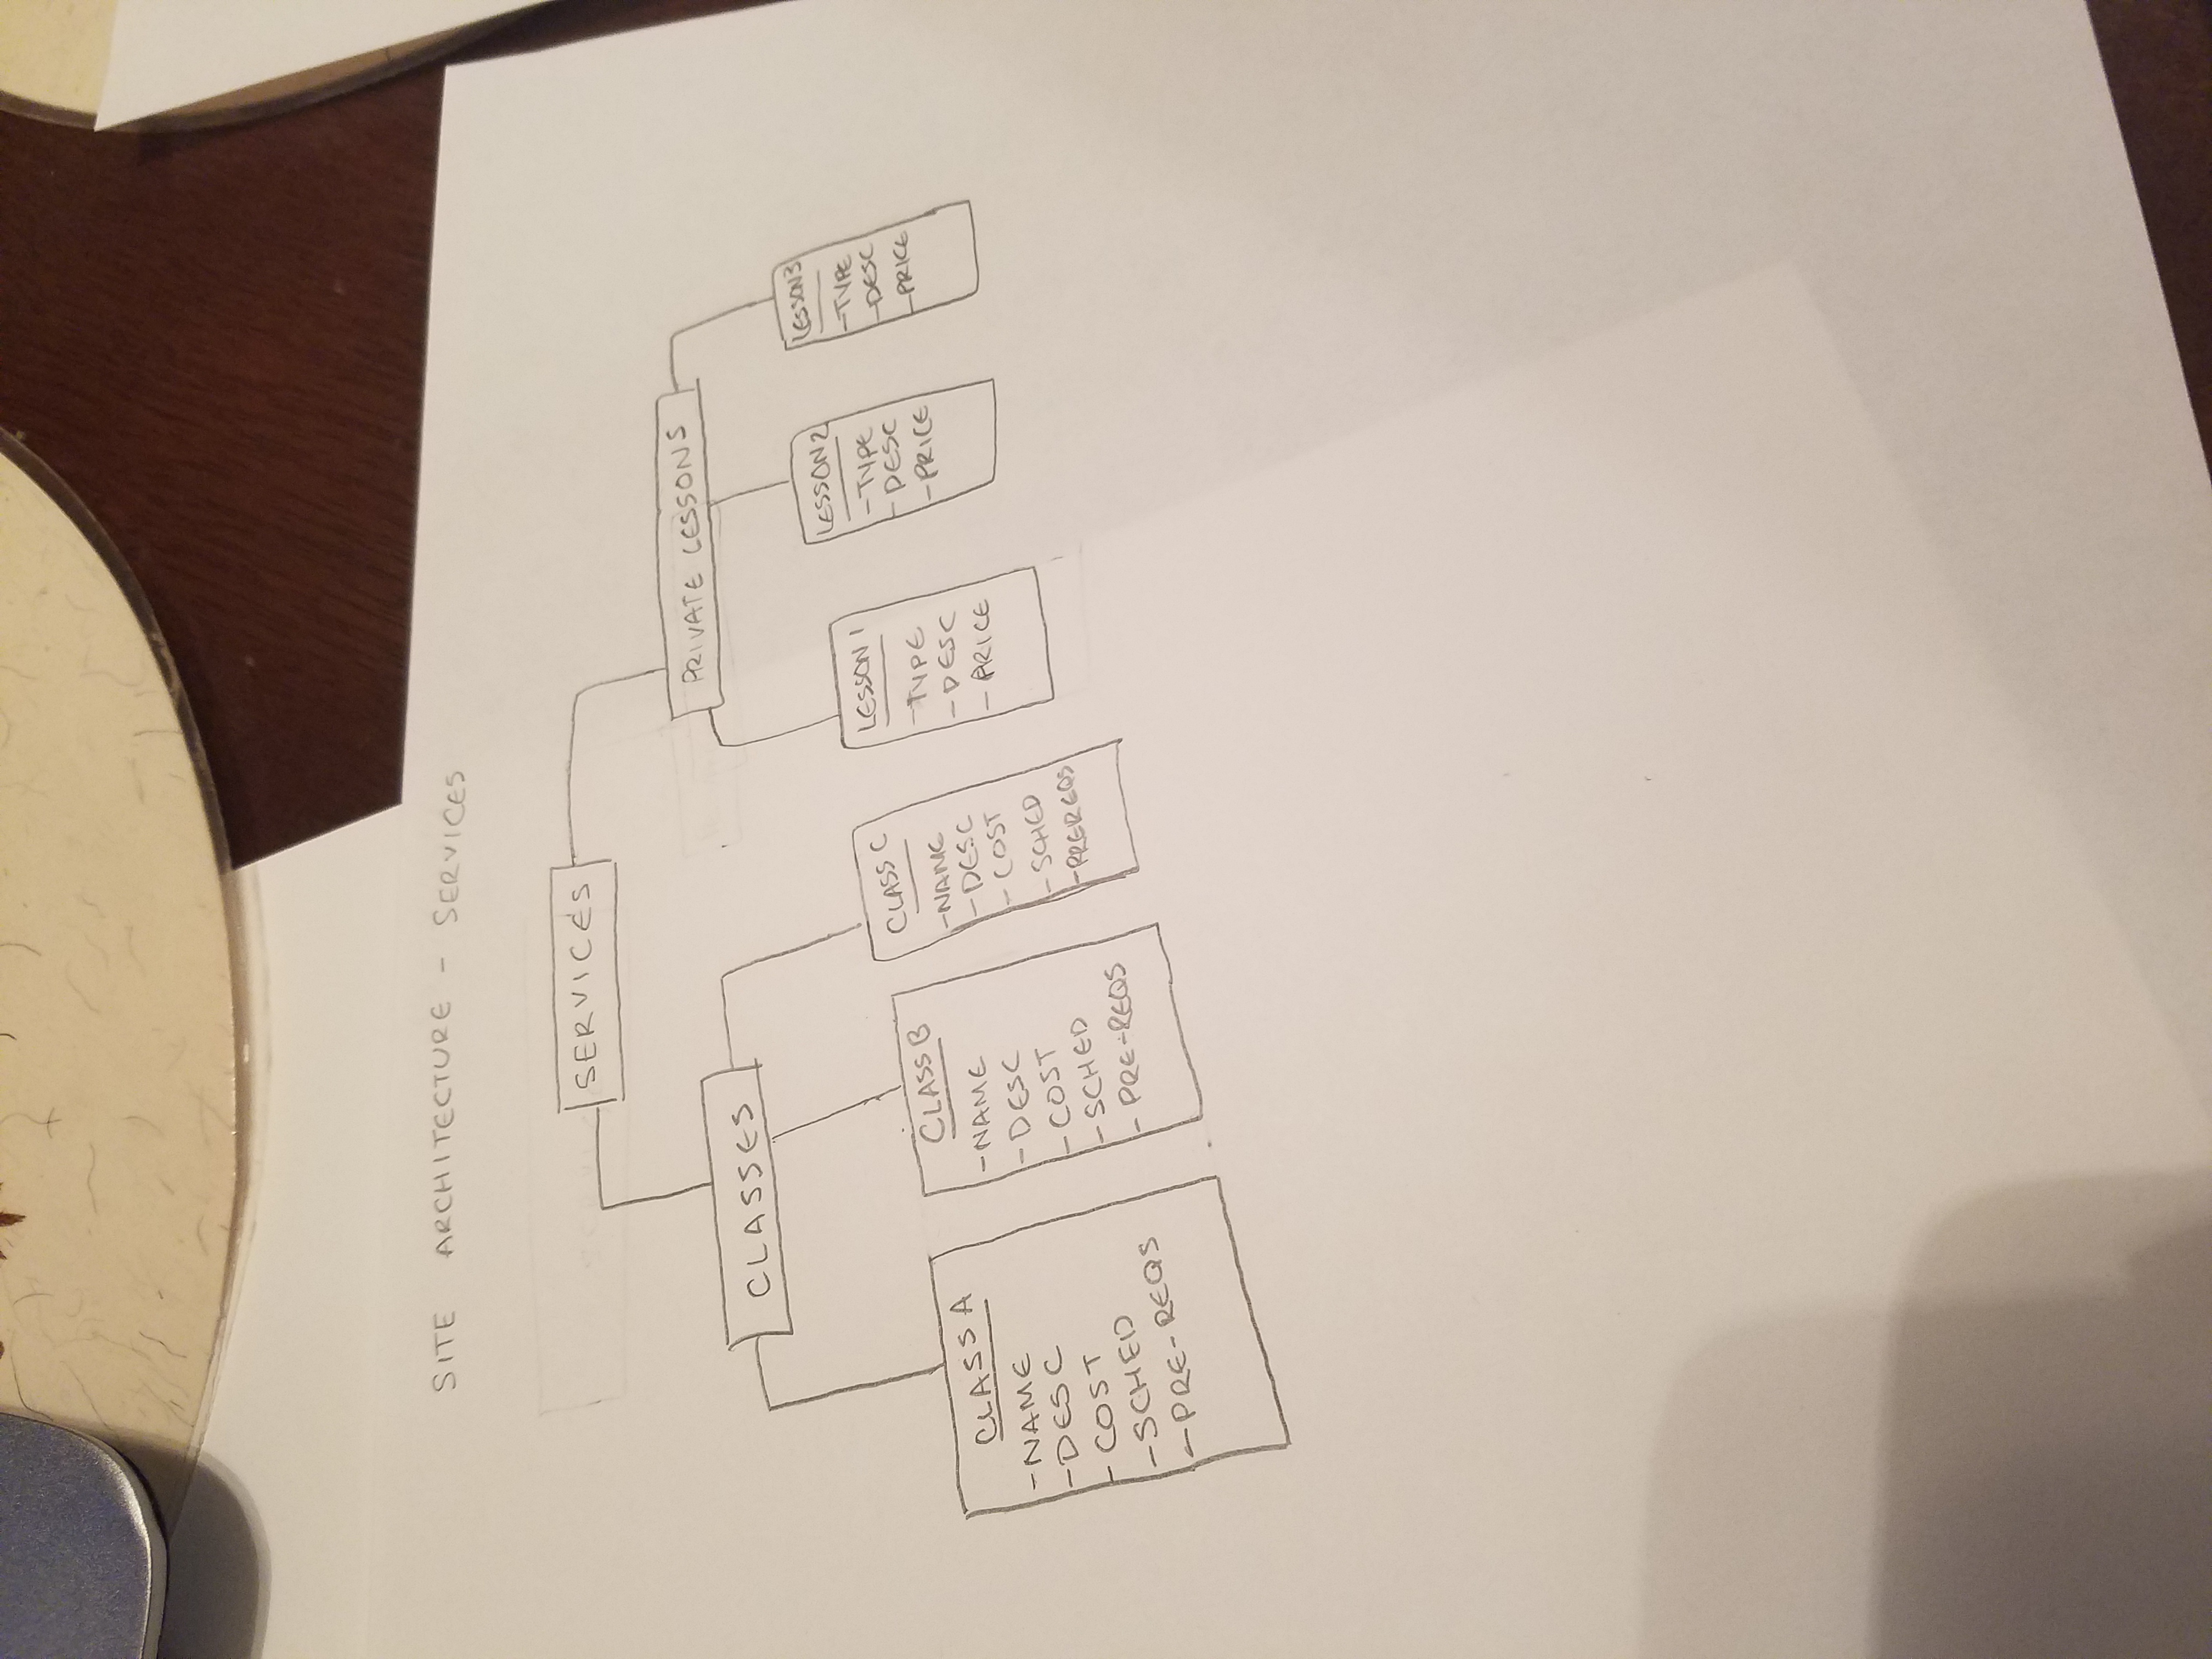 SITE ARCHITECTURE - SERVICES
SERVICES
CLASSES
PRIVATE LESSONS
CLASS A
- NAME
- DESC
- COST
- SCHED
- PRE-REQS
CLASS B
- NAME
- DESC
- COST
- SCHED
- PRE-REQS
CLASS C
- NAME
- DESC
- COST
- SCHED
- PREREQS
LESSON 1
- TYPE
- DESC
- PRICE
LESSON 2
- TYPE
- DESC
- PRICE
LESSON 3
- TYPE
- DESC
- PRICE